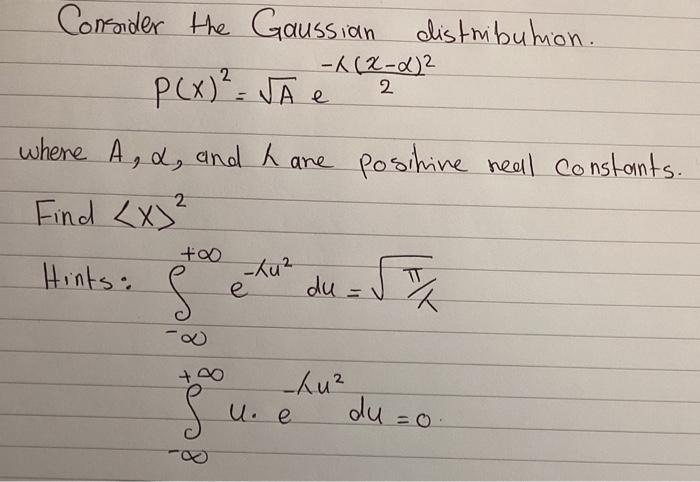 Consider the Gaussian distribution.
P(x)² = √A e^{-λ(x-α)²/2}
where A, α, and λ are positive real constants.
Find <x>²
Hints: ∫_{-∞}^{+∞} e^{-λu²} du = √(π/λ)
∫_{-∞}^{+∞} u. e^{-λu²} du = 0.